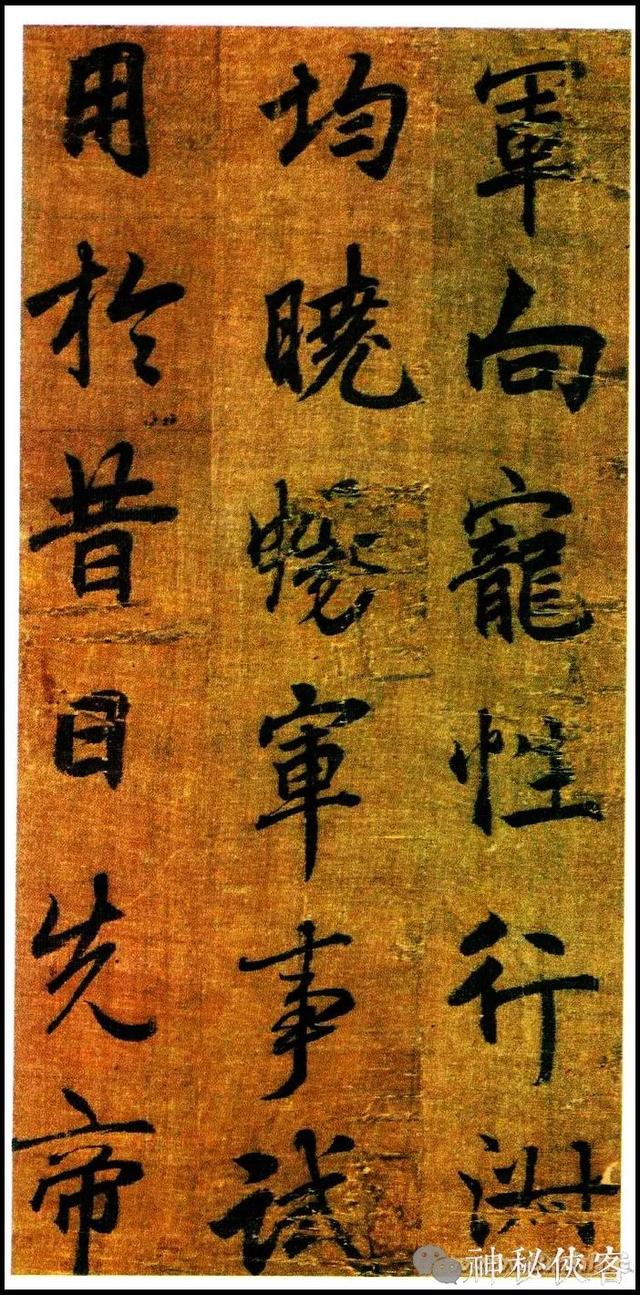 軍向寵性行淑
均曉暢軍事試
用於昔日先帝
神秘俠客